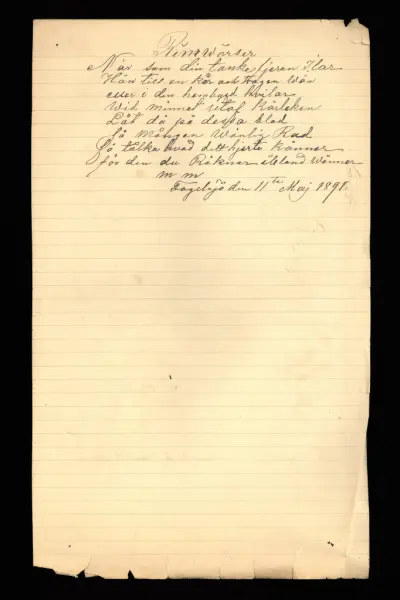 Rimwärser
När som din tanke fjeran Ilar
Hän till en kär och trogen Wän
eller i din hembygd hvilar
Wid minnet utaf Kärleken
Låt då på dessa blad
få mången Wänlig Rad
Få tälka hvad ditt hjerta känner
för den du Räknar ibland wänner
m m
Fogelsjö den 11te Maj 1891.